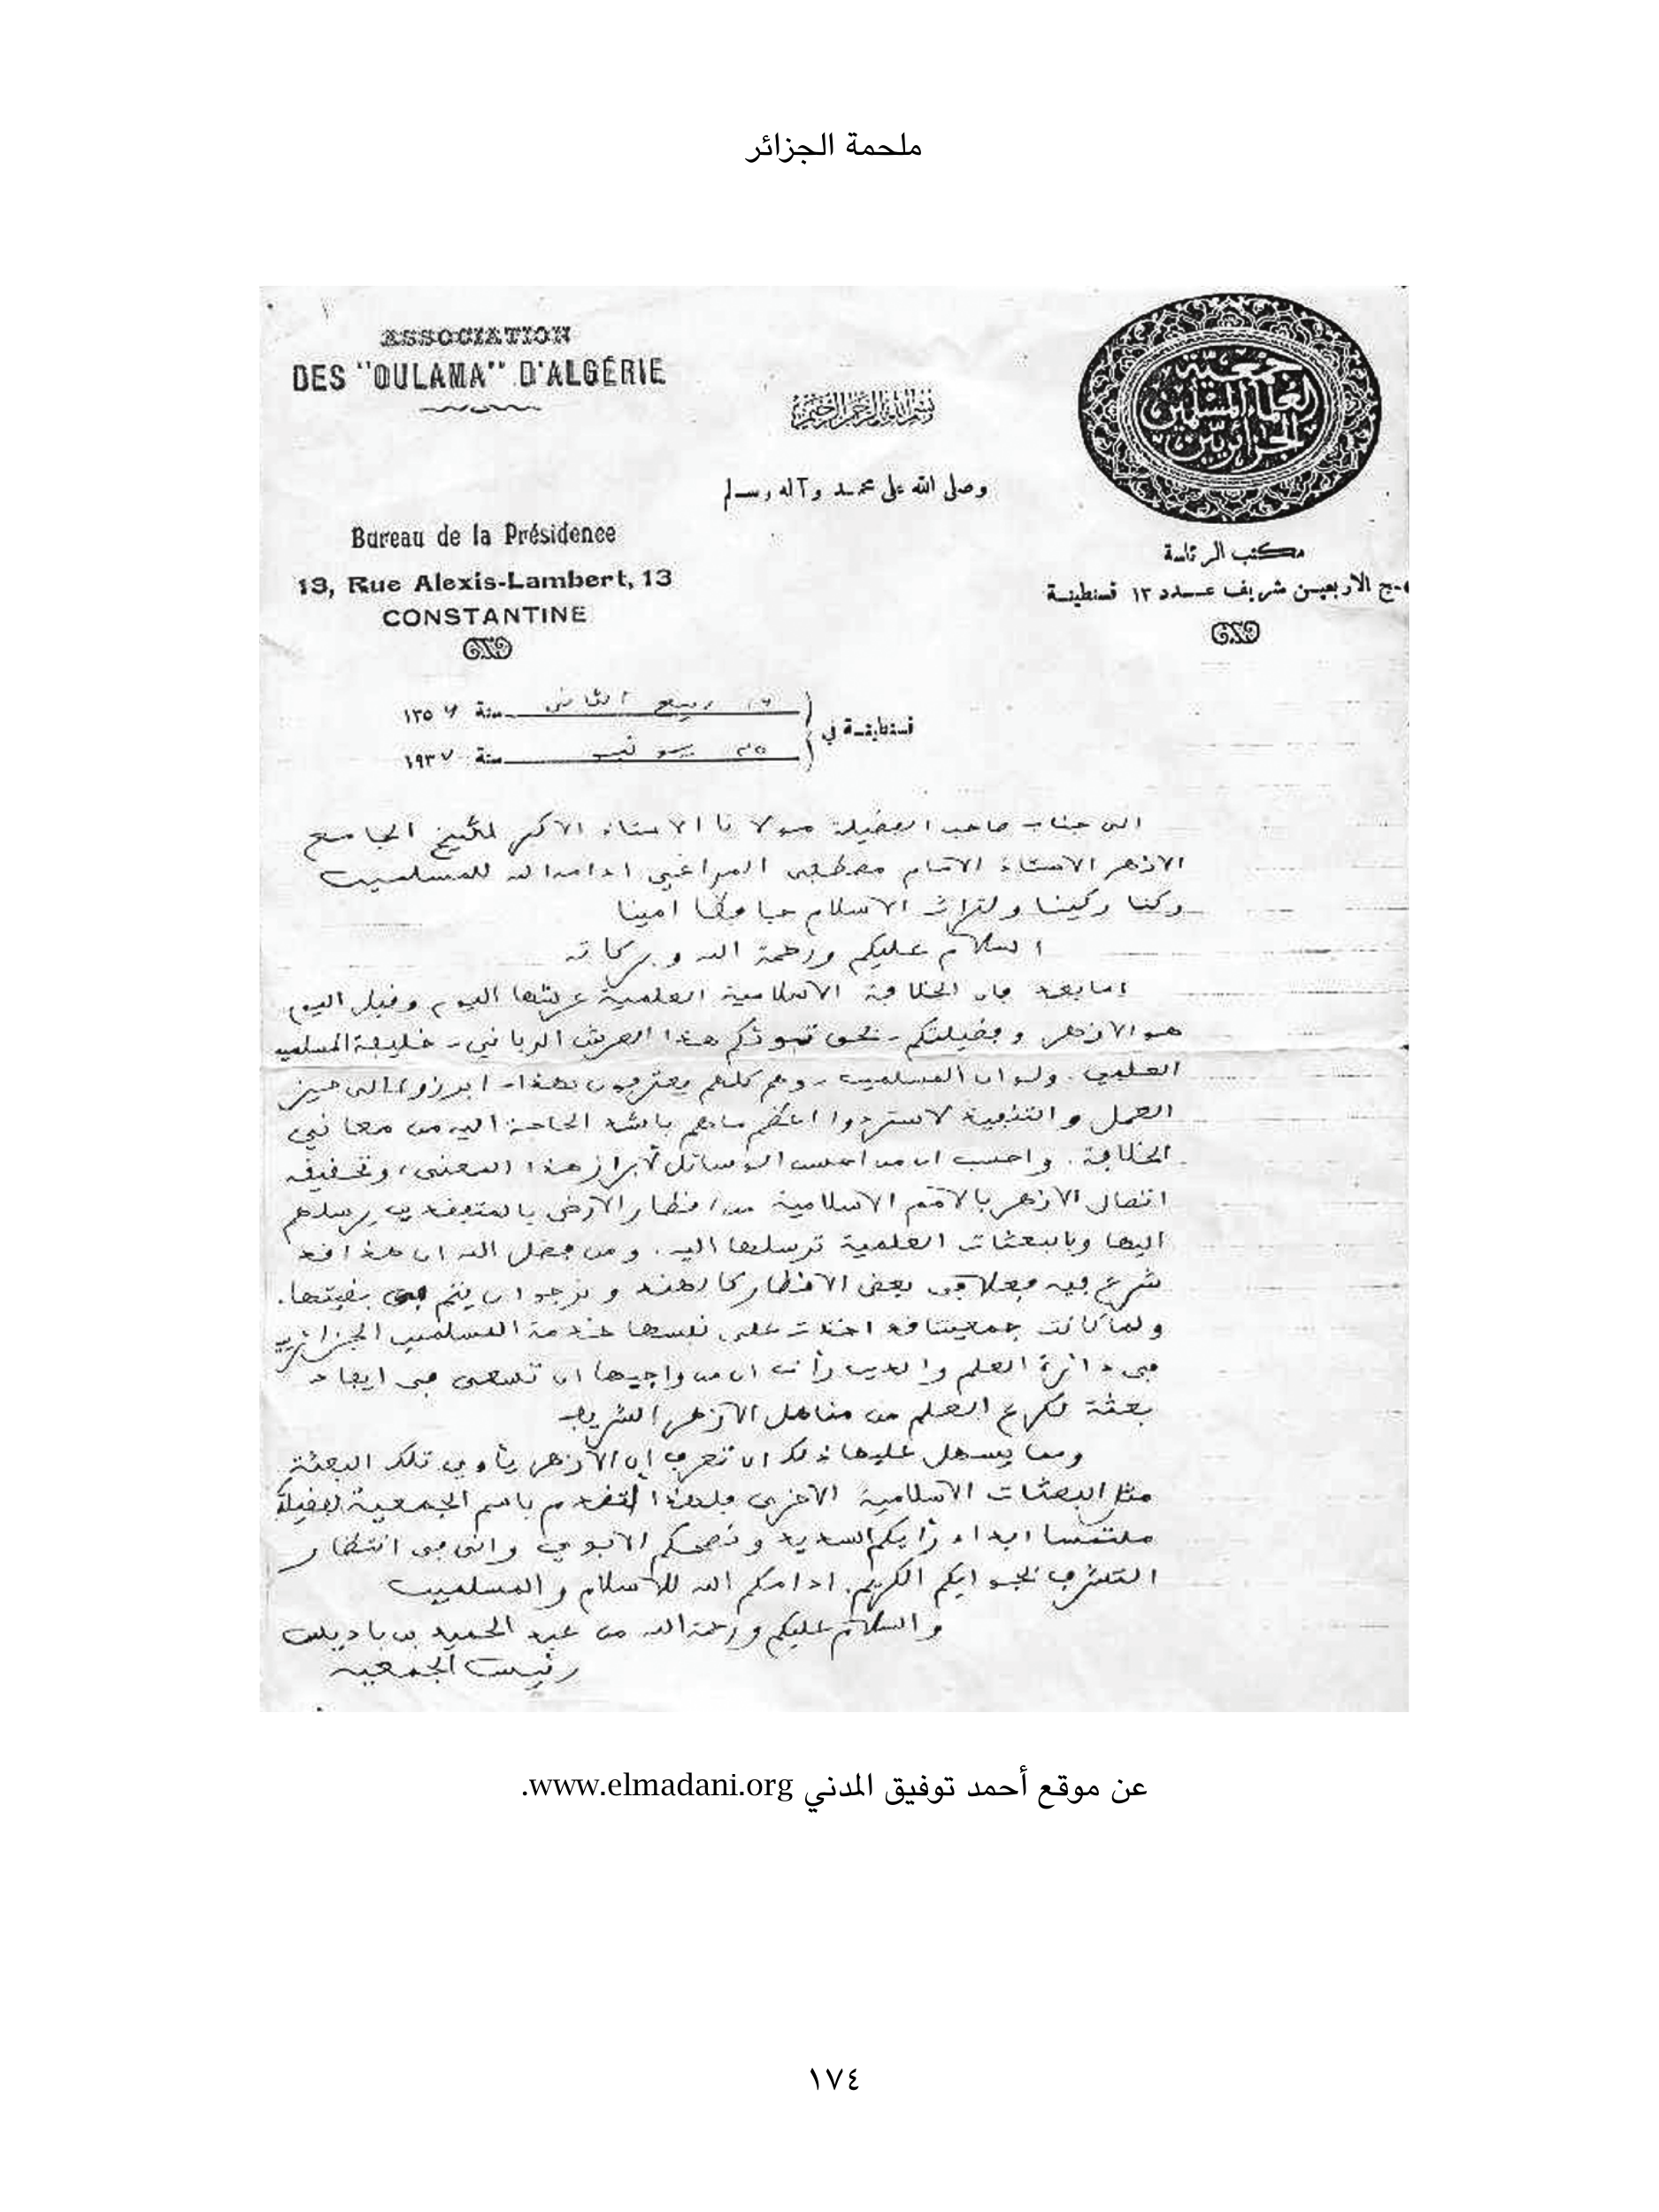 ملحمة الجزائر
ASSOCIATION
DES "OULAMA" D'ALGÉRIE
Bureau de la Présidence
13, Rue Alexis-Lambert, 13
CONSTANTINE
بسم الله الرحمن الرحيم
وصلى الله على محمد وآله وسلم
جمعية
العلماء المسلمين
الجزائريين
مكتب الرئاسة
ـهج الاربعين شريف عـدد ١٣ قسنطينة
قسنطينة في
ربيع الثاني سنة ١٣٥٦
سنة ١٩٣٧
الى جناب صاحب الفضيلة مولانا الاستاذ الاكبر الجامع
الازهر الاستاذ الامام مصطفى المراغي ادامه الله للمسلمين
ركنا ركينا ولتراث الاسلام حافظا امينا
السلام عليكم ورحمة الله وبركاته
اما بعد فان الخلافة الاسلامية العلمية عرشها اليوم وقبل اليوم
هو الازهر وفضيلتكم - بحق تبوئكم هذا العرش الرباني - خليفة المسلمين
العلمي. ولو ان المسلمين - وهم كلهم يعترفون بهذا - ابرزوه الى حيز
العمل والتنفيذ لاستردوا اعظم ما هم باشد الحاجة اليه من معاني
الخلافة. واحسب ان من احسن الوسائل لأبراز هذا المعنى، وتحقيقه
اتصال الازهر بالامم الاسلامية من اقطار الارض بالمتفقدين يرسلهم
اليها وبالبعثات العلمية ترسلها اليه. ومن فضل الله ان هذا قد
شرع فيه فعلا في بعض الاقطار كالهند ونرجو ان يتم في بقيتها.
ولما كانت جمعيتنا قد اخذت على نفسها خدمة المسلمين الجزائريين
في دائرة العلم والدين رأت ان من واجبها ان تسعى في ايجاد
بعثة تكرع العلم من مناهل الازهر الشريف
ومما يسهل عليها ذلك ان تعرف ان الازهر يأوي تلك البعثة
مثل البعثات الاسلامية الاخرى فلهذا اتقدم باسم الجمعية لفضيلتكم
ملتمسا ابداء رأيكم السديد ونصحكم الابوي واني في انتظار
التشرف بجوابكم الكريم. ادامكم الله للاسلام والمسلمين
والسلام عليكم ورحمة الله من عبد الحميد بن باديس
رئيس الجمعية
عن موقع أحمد توفيق المدني www.elmadani.org.
١٧٤